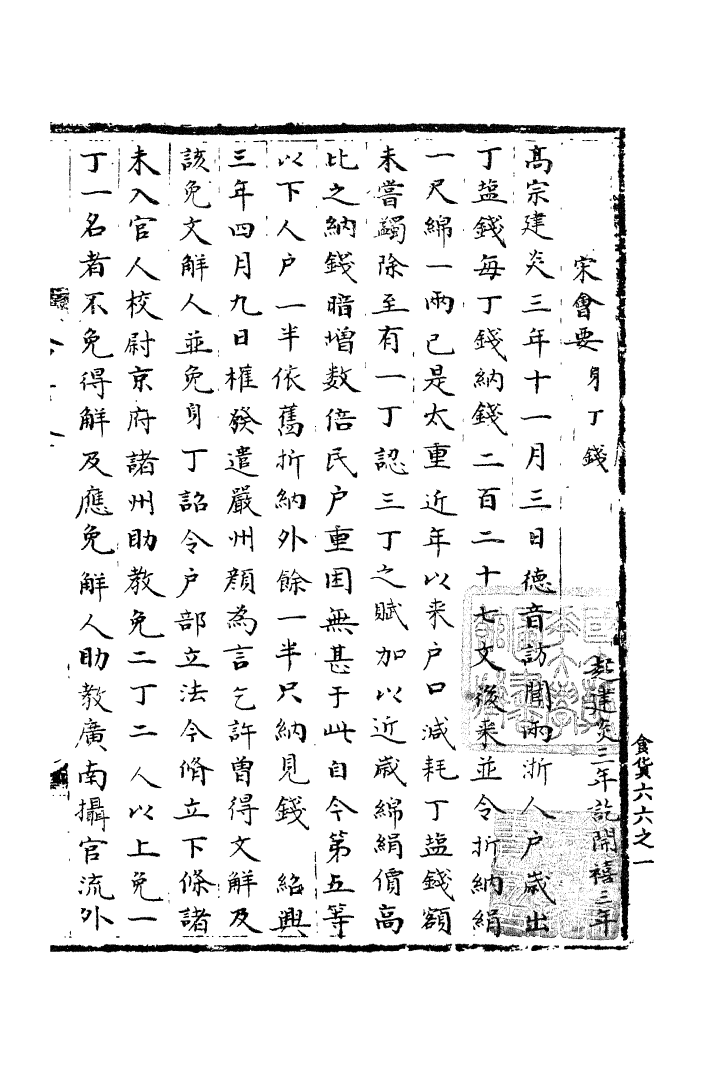 食貨六六之一
宋會要 身丁錢 起建炎三年訖開禧三年
髙宗建炎三年十一月三日德音訪聞兩浙人户歲出
丁塩錢每丁錢納錢二百二十七文後来並令折納絹
一尺綿一兩已是太重近年以来户口减耗丁塩錢額
未嘗蠲除至有一丁認三丁之賦加以近歲綿絹價高
比之納錢暗增数倍民户重困無甚于此自今第五等
以下人户一半依舊折納外餘一半只納見錢 紹興
三年四月九日權發遣嚴州顔為言乞許曾得文解及
該免文解人並免身丁詔令户部立法今脩立下條諸
未入官人校尉京府諸州助教免二丁二人以上免一
丁一名者不免得解及應免解人助教廣南攝官流外